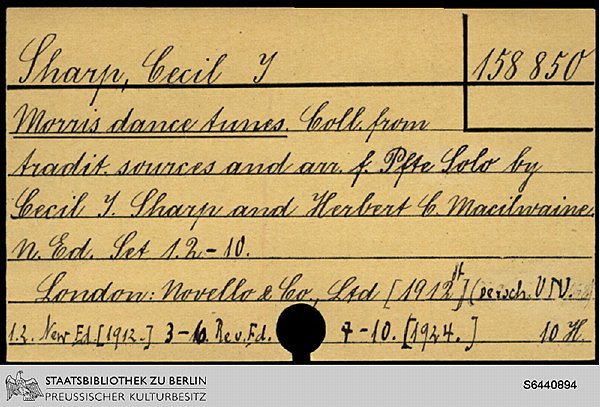 Sharp, Cecil J
158 850
Morris dance tunes. Coll. from
tradit. sources and arr. f. Pfte Solo by
Cecil J. Sharp and Herbert C. Macilwaine.
N. Ed. Set 1.2-10.
London: Novello & Co., Ltd [1912 ff] (versch. V.N.
1.2. New Ed. [1912-] 3-6 Rev. Ed. 7-10. [1924.] 10 H.
STAATSBIBLIOTHEK ZU BERLIN
PREUSSISCHER KULTURBESITZ
S6440894